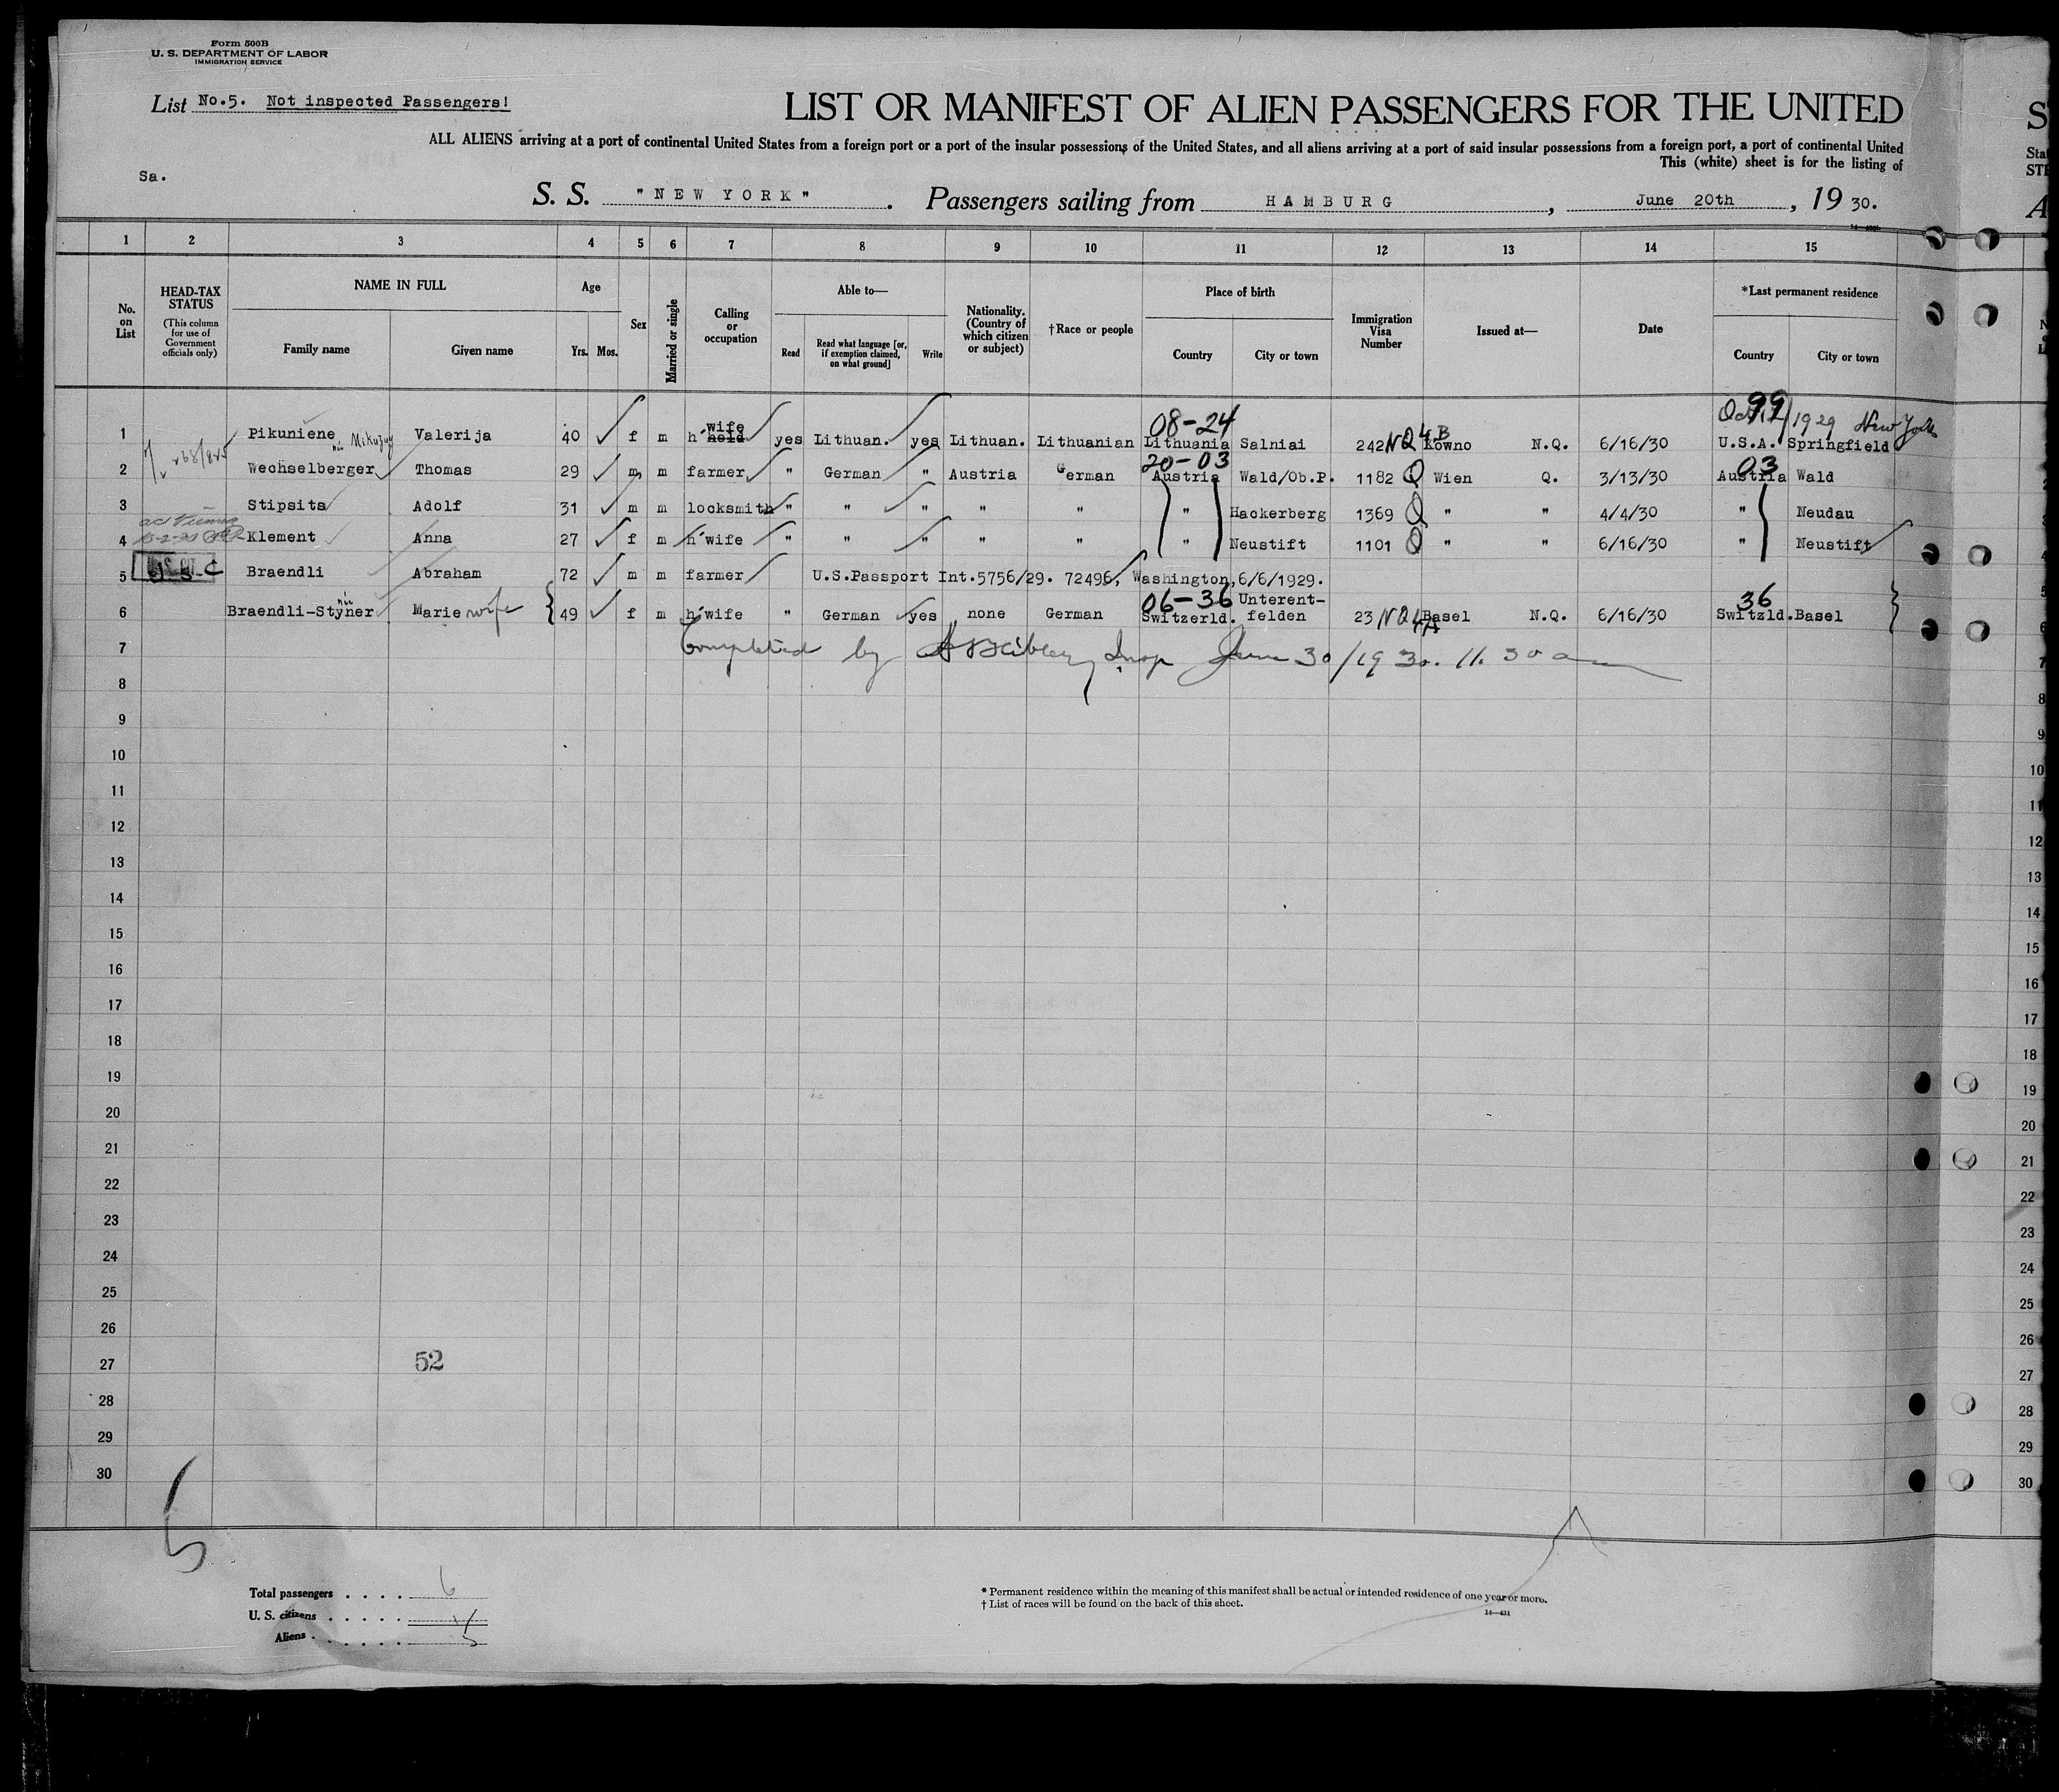 Form 500B
U. S. DEPARTMENT OF LABOR
IMMIGRATION SERVICE
List No.5. Not inspected Passengers!
LIST OR MANIFEST OF ALIEN PASSENGERS FOR THE UNITED
ALL ALIENS arriving at a port of continental United States from a foreign port or a port of the insular possessions of the United States, and all aliens arriving at a port of said insular possessions from a foreign port, a port of continental United
This (white) sheet is for the listing of
Sa.
S. S. "NEW YORK". Passengers sailing from HAMBURG, June 20th, 19 30.
1 2 3 4 5 6 7 8 9 10 11 12 13 14 15
No. on List
HEAD-TAX STATUS
(This column for use of Government officials only)
NAME IN FULL
Family name Given name
Age
Yrs. Mos.
Sex
Married or single
Calling or occupation
Able to—
Read
Read what language [or, if exemption claimed, on what ground]
Write
Nationality. (Country of which citizen or subject)
†Race or people
Place of birth
Country City or town
Immigration Visa Number
Issued at—
Date
*Last permanent residence
Country City or town
08-24 99 1929 New York
1 Pikuniene Valerija 40 f m h'hold wife yes Lithuan. yes Lithuan. Lithuanian Lithuania Salniai 242 NQ 4 B Kowno N.Q. 6/16/30 U.S.A. Springfield
20-03 03
2 Wechselberger Thomas 29 m m farmer " German " Austria German Austria Wald/Ob.P. 1182 Q Wien Q. 3/13/30 Austria Wald
3 Stipsits Adolf 31 m m locksmith " " " " " " Hackerberg 1369 Q " " 4/4/30 " Neudau
4 Klement Anna 27 f m h'wife " " " " " " Neustift 1101 Q " " 6/16/30 " Neustift
5 Braendli Abraham 72 m m farmer U.S.Passport Int.5756/29. 72496, Washington,6/6/1929.
06-36 36
6 Braendli-Styner née Marie wife 49 f m h'wife " German yes none German Switzerld. Unterent-felden 23 NQ 4A Basel N.Q. 6/16/30 Switzld. Basel
7 Completed by Insp June 30/1930. 11.30 am
8
9
10
11
12
13
14
15
16
17
18
19
20
21
22
23
24
25
26
27 52
28
29
30
5
Total passengers . . . . 6
U. S. citizens . . . . . 1
Aliens . . . . . . 5
* Permanent residence within the meaning of this manifest shall be actual or intended residence of one year or more.
† List of races will be found on the back of this sheet.
14—431